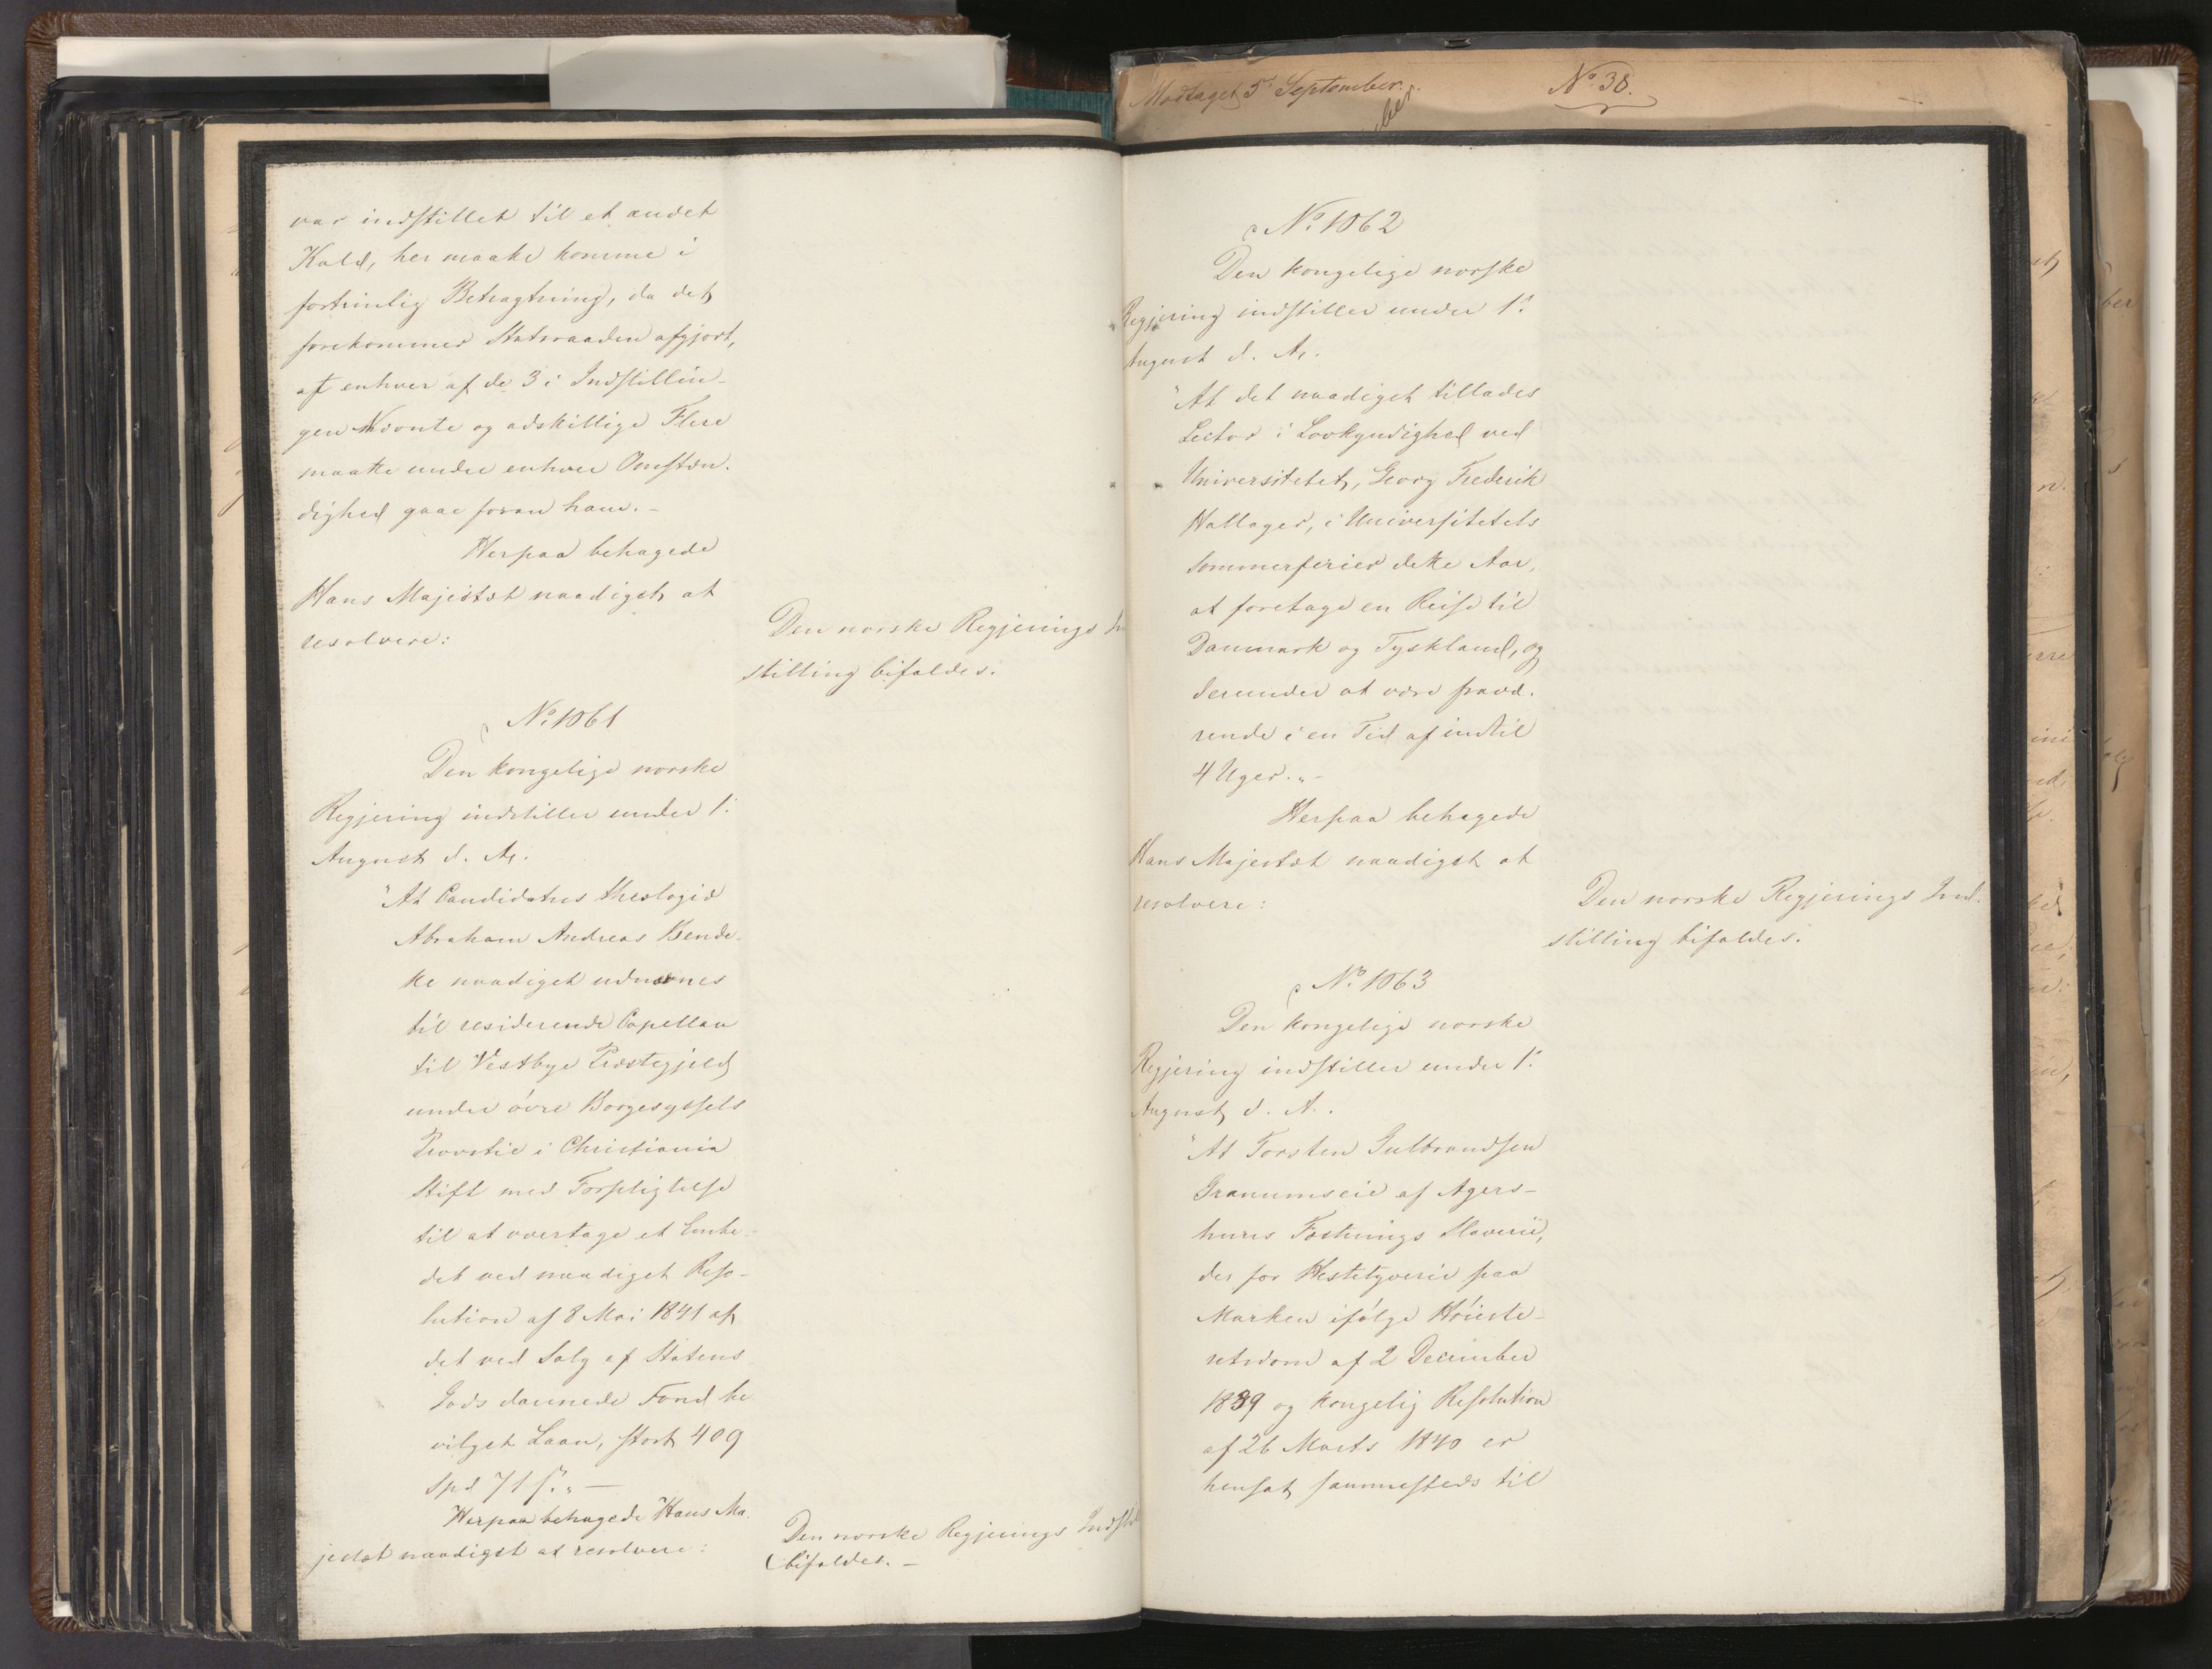 var indstillet til et andet
Kald, her maatte komme i
fortrinlig Betragtning, da det
forekommer Statsraaden afgjort,
at enhver af de 3 i Indstillin-
gen Nævnte og adskillige Flere
maatte under enhver Omstæn-
dighed gaae foran ham. -
Herpaa behagede
Hans Majestæt naadigst at
resolvere:
Den norske Regjerings In
stilling bifaldes.
No. 1061
Den kongelige norske
Regjering indstiller under 1.
August d. A.
"At Candidatus theologiæ
Abraham Andreas Bende-
ke naadigst udnævnes
til residerende Capellan
til Vestbye Præstegjeld
under övre Borgesyssels
Provstie i Christiania
Stift med Forpligtelse
til at overtage et Embe-
det ved naadigst Reso-
lution af 8 Mai 1841 af
det ved Salg af Statens
Gods dannede Fond be
vilget Laan, stort 409
Spd 71 s." -
Herpaa behagede Hans Ma-
jestæt naadigst at resolvere:
Den norske Regjerings Indstil
(bifaldes. -
Modtaget 5t September.
No. 38.
ber
No. 1062
Den kongelige norske
Regjering indstiller under 1.
August d. A.
"At det naadigst tillades
Lector i Lovkyndighed ved
Universitetet, Georg Frederik
Hallager, i Universitetets
Sommerferier dette Aar,
at foretage en Reise til
Danmark og Tyskland, og
derunder at være fravæ-
rende i en Tid af indtil
4 Uger." -
Herpaa behagede
Hans Majestæt naadigst at
resolvere:
Den norske Regjerings Ind-
stilling bifaldes.
No. 1063
Den kongelige norske
Regjering indstiller under 1.
August d. A.
"At Torsten Gulbrandsen
Granumseie af Agers-
huus Fæstnings Slaverie,
der for Hestetyverie paa
Marken ifölge Höieste-
retsdom af 2 December
1839 og kongelig Resolution
af 26 Marts 1840 er
hensat sammesteds til